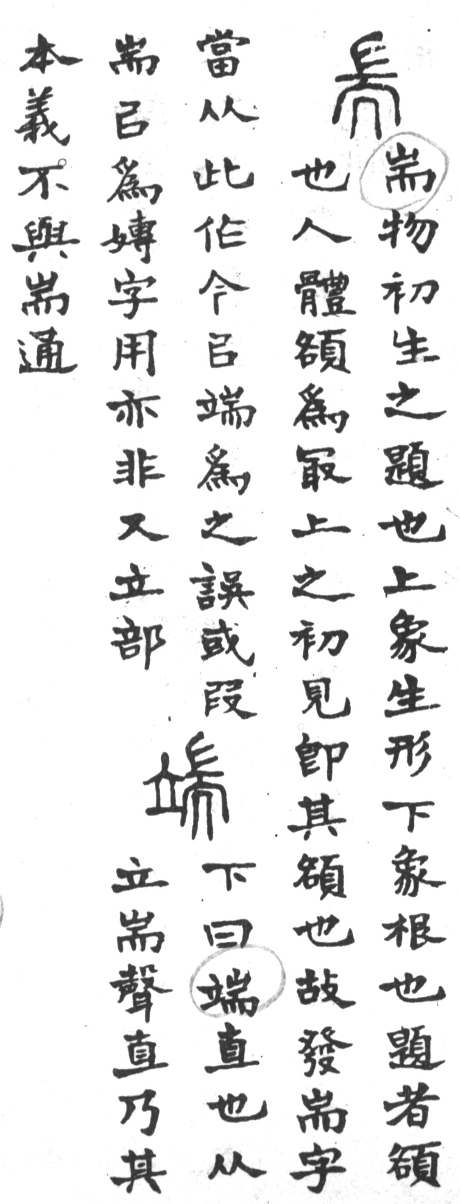 耑
耑物初生之題也上象生形下象根也題者頟
也人體頟爲冣上之初見即其頟也故發耑字
當从此作今㠯端爲之誤或叚
耑㠯爲嫥字用亦非又立部
端
下曰端直也从
立耑聲直乃其
本義不與耑通